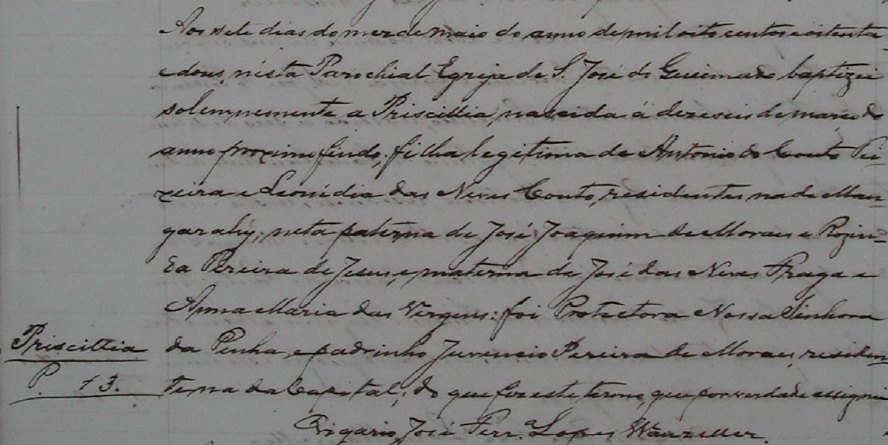 Aos sete dias do mez de maio do anno de mil oito centos e oitenta
e dous, n'ésta Parochial Egreja de S. José do Queimado baptizei
solemnemente a Priscillia, nascida á dezeseis de março do
anno proximo findo, filha legitima de Antonio do Couto Tei-
xeira e Leonidia das Neves Couto, residentes na de Man-
garahy, neta paterna de José Joaquim de Moraes e Rozin-
da Pereira de Jesus, e materna de José das Neves Fraga e
Anna Maria das Virgens: foi Protectora Nossa Senhora
Priscillia
da Penha, e padrinho Juvencio Pereira de Moraes, residen-
P. 13.
te na da Capital; do que fiz este termo, que por verdade assignei
Vigario José Ferr.ª Lopes Wanzeller.